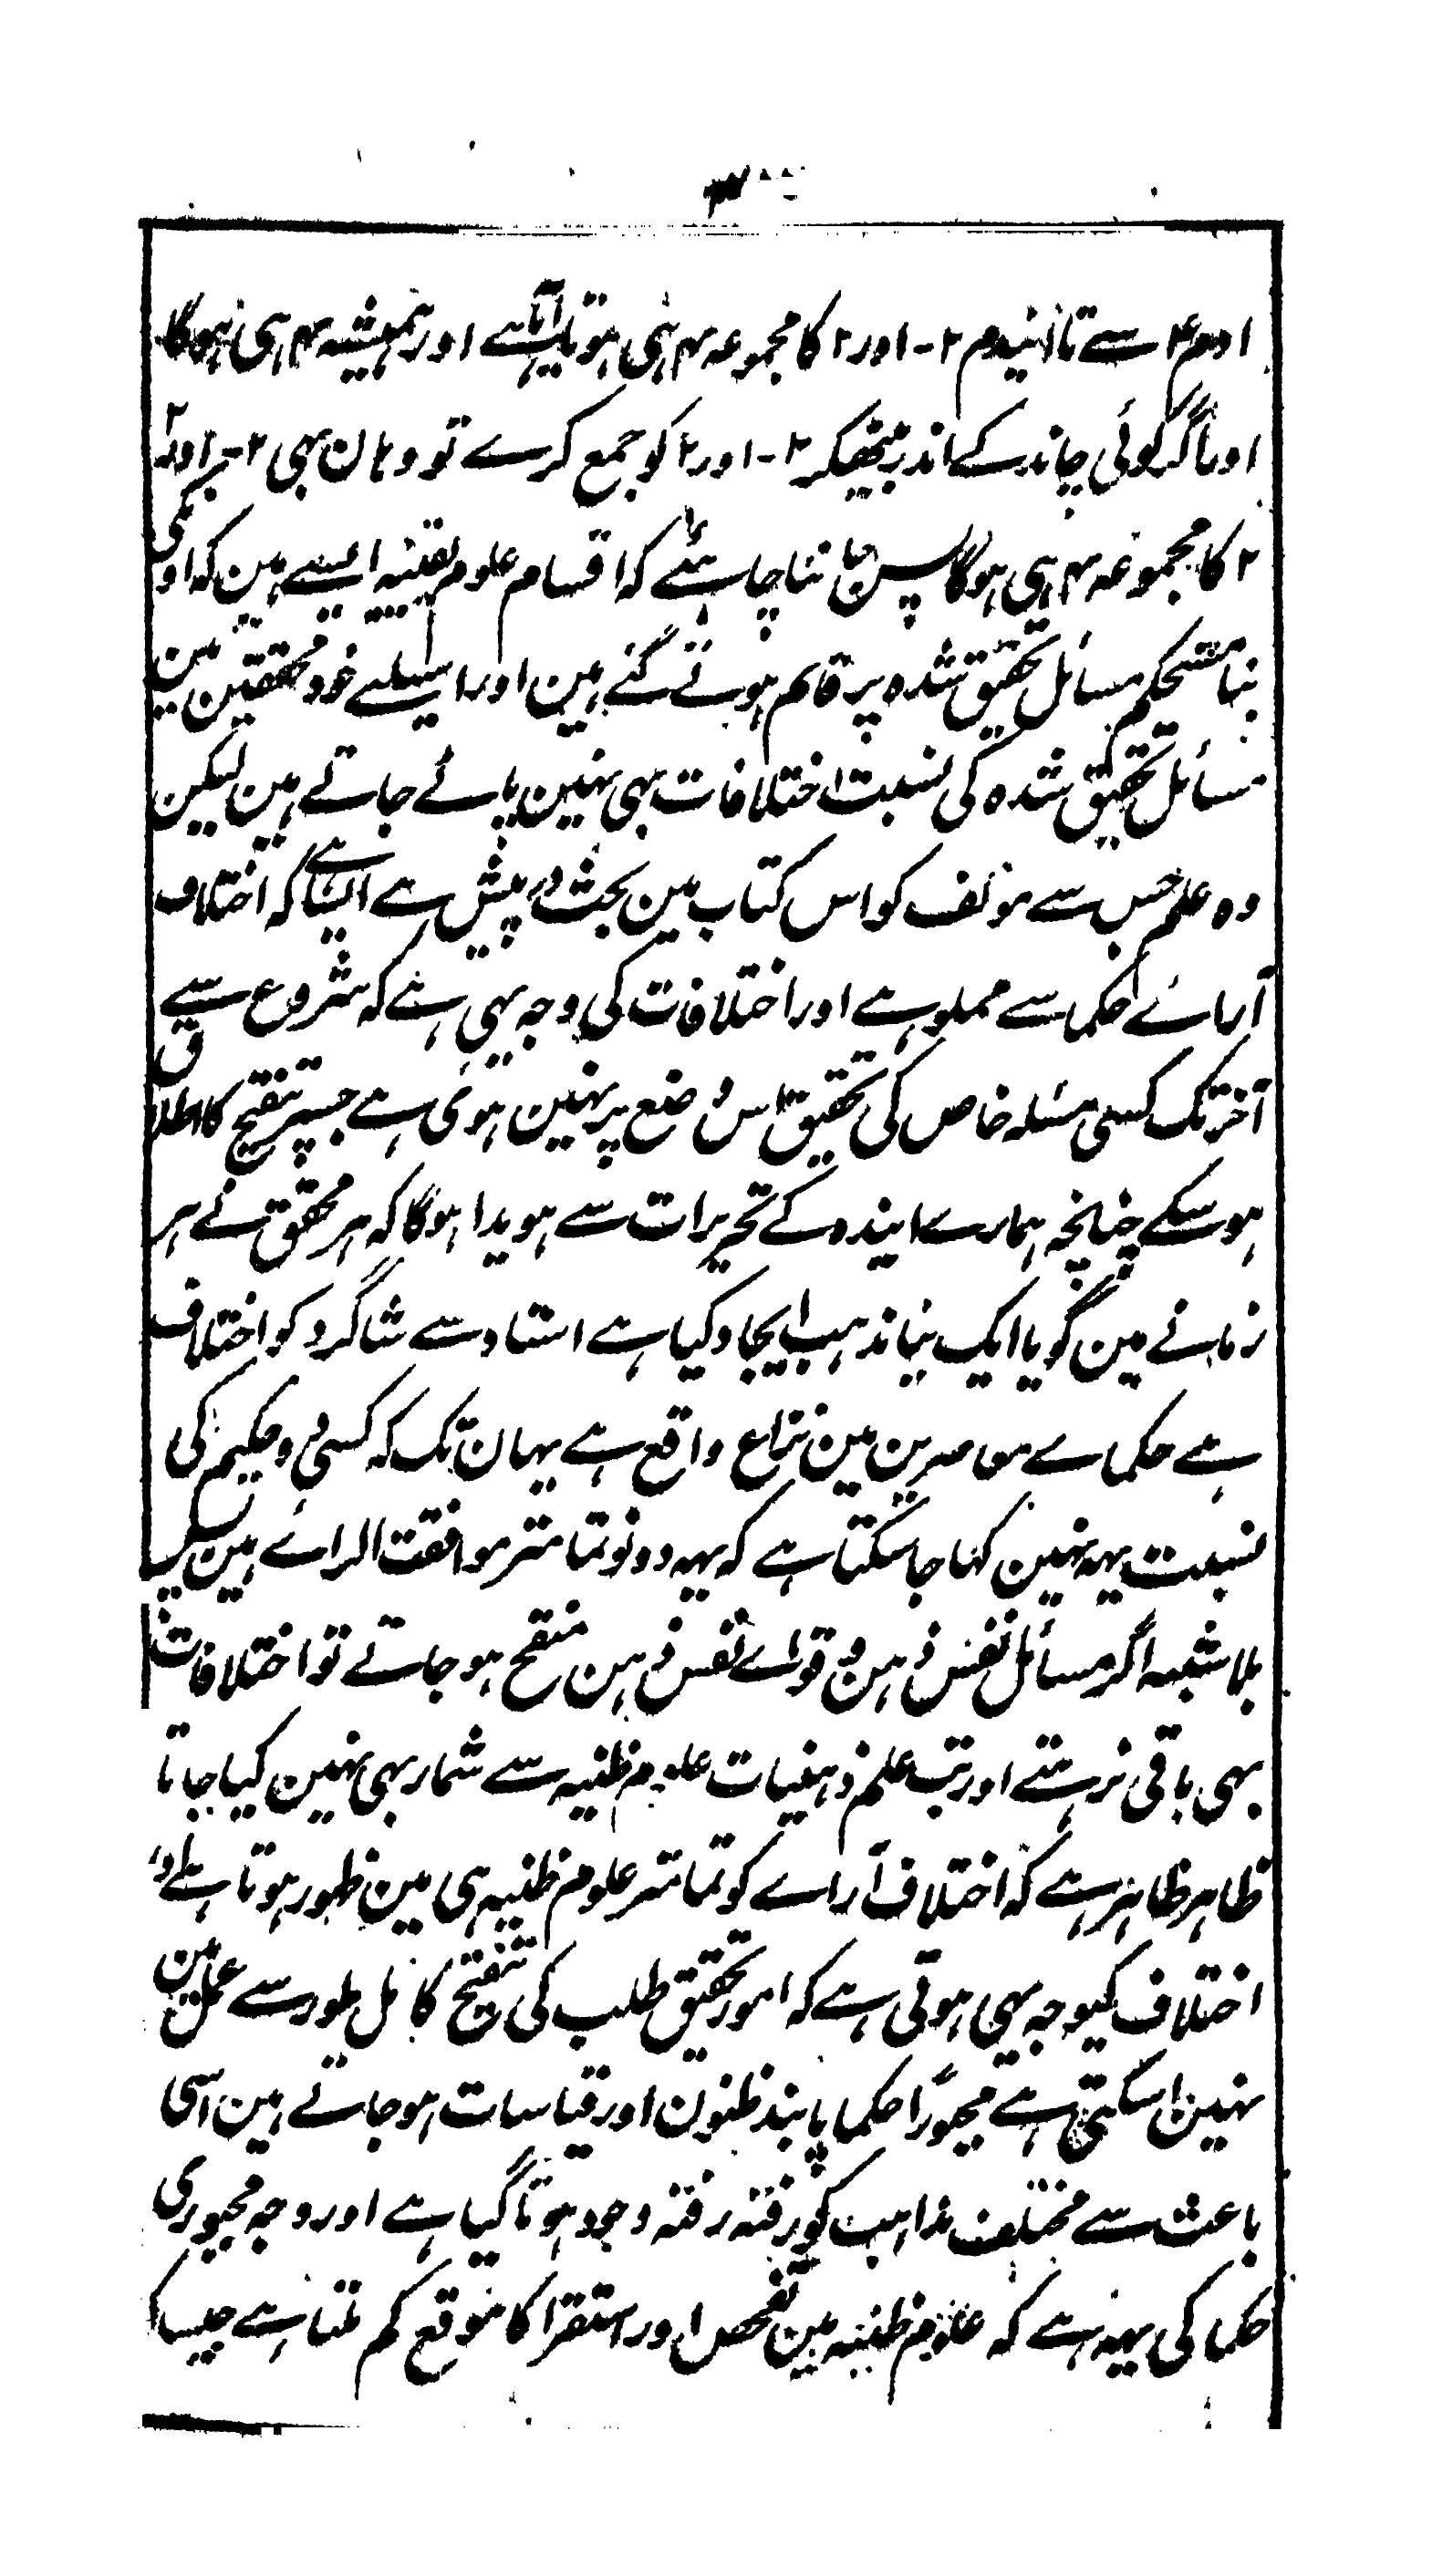 ادم ۴ سے تا ایندم ۲- اور ۲ کا مجموعہ ۴ ہی ہوتا آیا ہے اور ہمیشہ ۴ ہی ہوگا
اور اگر کوئی چاند کے اندر بیٹھکر ۲- اور ۲ کو جمع کرے تو وہان بہی ۲- اور ۲
۲ کا مجموعہ ۴ ہی ہوگا پس جاننا چاہئے کہ اقسام علوم یقینیہ ایسے ہین کہ اونکی
بنا مستحکم مسائل تحقیق شدہ پر قایم ہوتے گئے ہین اور اسیلیے خود محققین مین
مسائل تحقیق شدہ کی نسبت اختلافات بہی نہین پائے جاتے ہین لیکن
وہ علم جس سے مؤلف کو اس کتاب مین بحث درپیش ہے ایسا ہے کہ اختلاف
آرائے حکما سے مملو ہے اور اختلافات کی وجہ یہی ہے کہ شروع سے
آخر تک کسی مسئلہ خاص کی تحقیق اس وضع پر نہین ہوئی ہے جسپر تنقیح کا اطلاق
ہوسکے چنانچہ ہمارے ایندہ کے تحریرات سے ہویدا ہوگا کہ ہر محقق نے ہر
زمانے مین گویا ایک نیا مذہب ایجاد کیا ہے استاد سے شاگرد کو اختلاف
ہے حکماے معاصرین مین نزاع واقع ہے یہان تک کہ کسی دو حکیم کی
نسبت یہہ نہین کہا جاسکتا ہے کہ یہہ دونو تمامتر موافقت الراے ہین پس
بلا شبہہ اگر مسائل نفس ذہن و قواے نفس ذہن منقح ہو جاتے تو اختلافات
بہی باقی نرہتے اور تب علم ذہنیات علوم ظنیہ سے شمار بہی نہین کیا جاتا
ظاہر ظاہر ہے کہ اختلاف آراے کو تمامتر علوم ظنیہ ہی مین ظہور ہوتا ہے اور
اختلاف کیوجہ یہی ہوتی ہے کہ امور تحقیق طلب کی تنقیح کامل طور سے عمل مین
نہین اسکتی ہے مجبوراً حکما پابند ظنون اور قیاسات ہو جاتے ہین اسی
باعث سے مختلف مذاہب کو رفتہ رفتہ وجود ہوتا گیا ہے اور وجہ مجبوری
حکما کی یہہ ہے کہ علوم ظنیہ مین تفحص اور استقرا کا موقع کم ملتا ہے جیسا